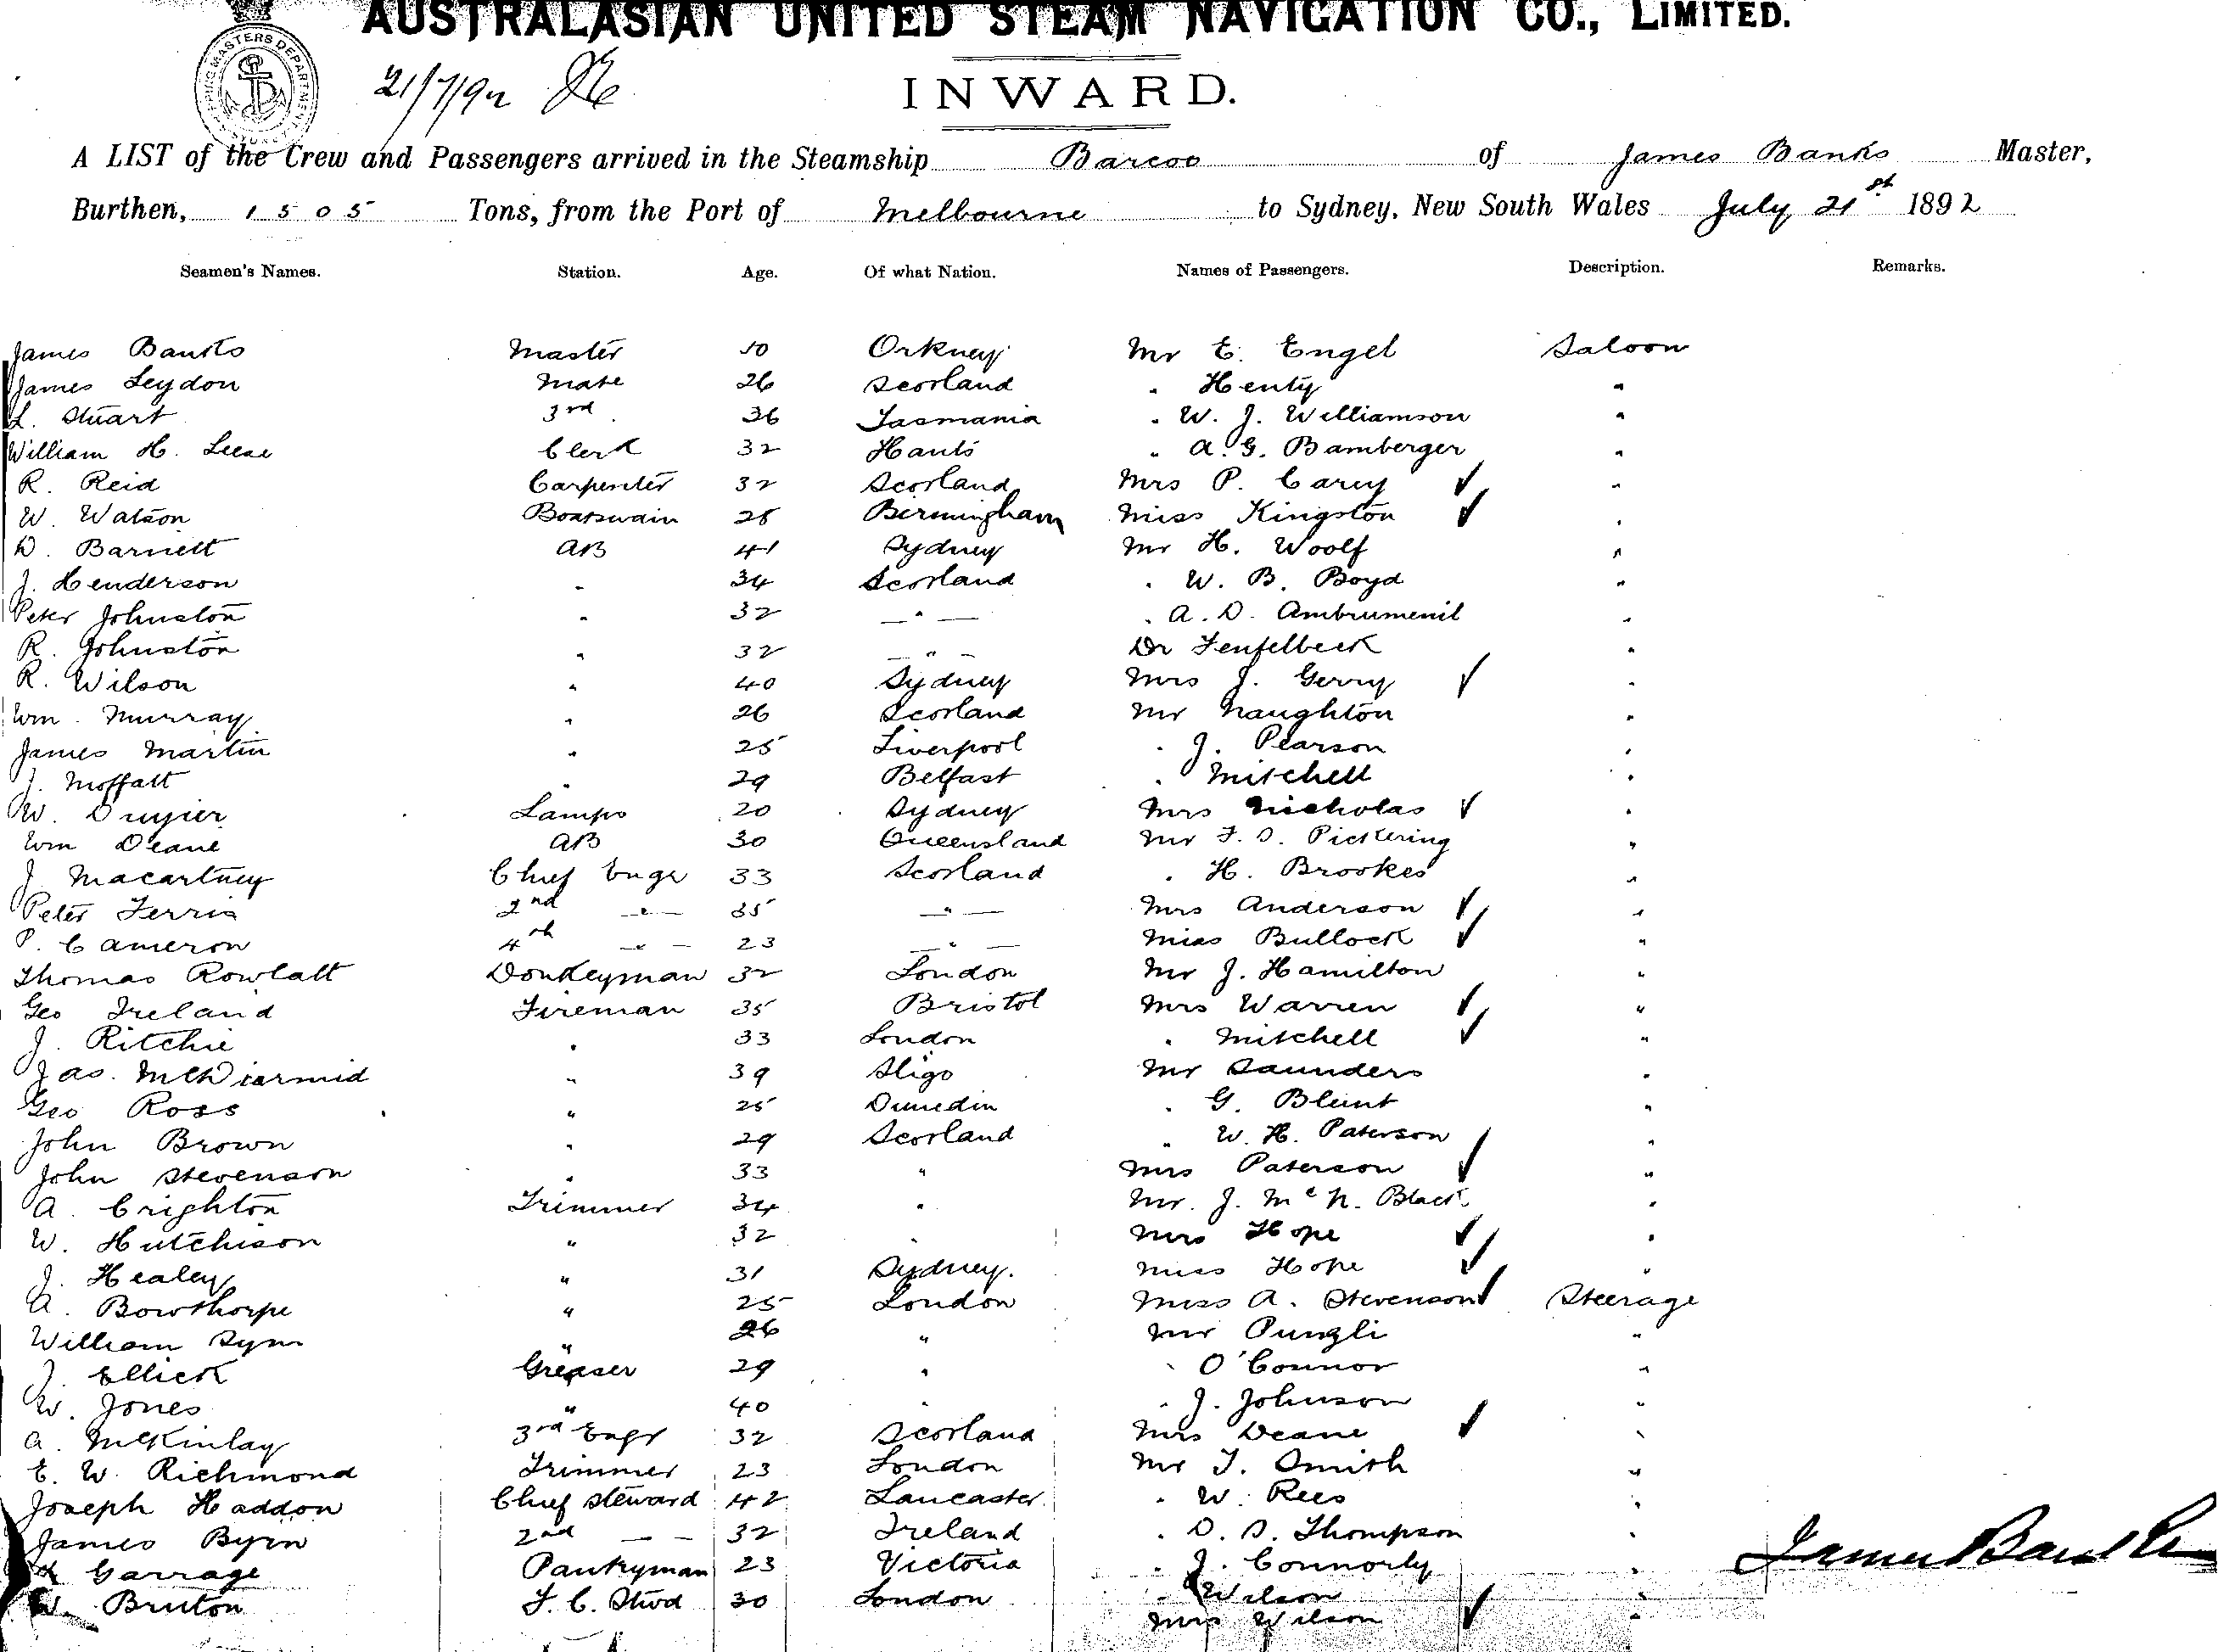 AUSTRALASIAN UNITED STEAM NAVIGATION CO., LIMITED.
21/7/92
INWARD.
A LIST of the Crew and Passengers arrived in the Steamship Barcoo of James Banks Master,
Burthen, 1505 Tons, from the Port of Melbourne to Sydney, New South Wales July 21st 1892
Seamen's Names. Station. Age. Of what Nation. Names of Passengers. Description. Remarks.
James Banks Master 50 Orkney Mr E. Engel Saloon
James Leydon Mate 26 Scotland " Henty "
L. Stuart 3rd 36 Tasmania " W. J. Williamson "
William H. Leese Clerk 32 Hants " A. G. Bamberger "
R. Reid Carpenter 32 Scotland Mrs P. Carey ✓ "
W. Watson Boatswain 28 Birmingham Miss Kingston ✓ "
D. Barnett AB 41 Sydney Mr H. Woolf "
J. Henderson " 34 Scotland " W. B. Boyd "
Peter Johnston " 32 " " A. D. Ambrumenil "
R. Johnston " 32 " Dr "
R. Wilson " 40 Sydney Mrs J. Gerry ✓ "
Wm Murray " 26 Scotland Mr Naughton "
James Martin " 25 Liverpool " J. Pearson "
J. Moffatt " 29 Belfast " Mitchell "
W. Lamps 20 Sydney Mrs Nicholas ✓ "
Wm Deane AB 30 Queensland Mr F. S. Pickering "
J. Macartney Chief Engr 33 Scotland " H. Brookes "
Peter Ferris 2nd " 35 " Mrs Anderson ✓ "
P. Cameron 4th " 23 " Miss Bullock ✓ "
Thomas Rowlatt Donkeyman 32 London Mr J. Hamilton "
Geo Ireland Fireman 35 Bristol Mrs Warren ✓ "
J. Ritchie " 33 London " Mitchell ✓ "
Jas. McDiarmid " 39 Sligo Mr Saunders "
Geo Ross " 25 Dunedin " G. Blunt "
John Brown " 29 Scotland " W. H. Paterson "
John Stevenson " 33 " Mrs Paterson ✓ "
A. Crighton Trimmer 34 " Mr. J. McN. Black "
W. Hutchison " 32 " Mrs Hope ✓ "
J. Healey " 31 Sydney. Miss Hope ✓ "
A. Bowthorpe " 25 London Miss A. Stevenson ✓ Steerage
William Sym " 26 " Mr Pungli "
J. Ellick Greaser 29 " " O'Connor "
W. Jones " 40 " " J. Johnson "
A. McKinlay 3rd Engr 32 Scotland Mrs Deane ✓ "
E. W. Richmond Trimmer 23 London Mr T. Smith "
Joseph Haddon Chief Steward 42 Lancaster " W. Rees "
James Byrn 2nd " 32 Ireland " D. D. Thompson "
Garrage Pantryman 23 Victoria " J. Connorly "
W. Bruton F. C. Stwd 30 London " Wilson "
Mrs Wilson ✓ "
James Banks